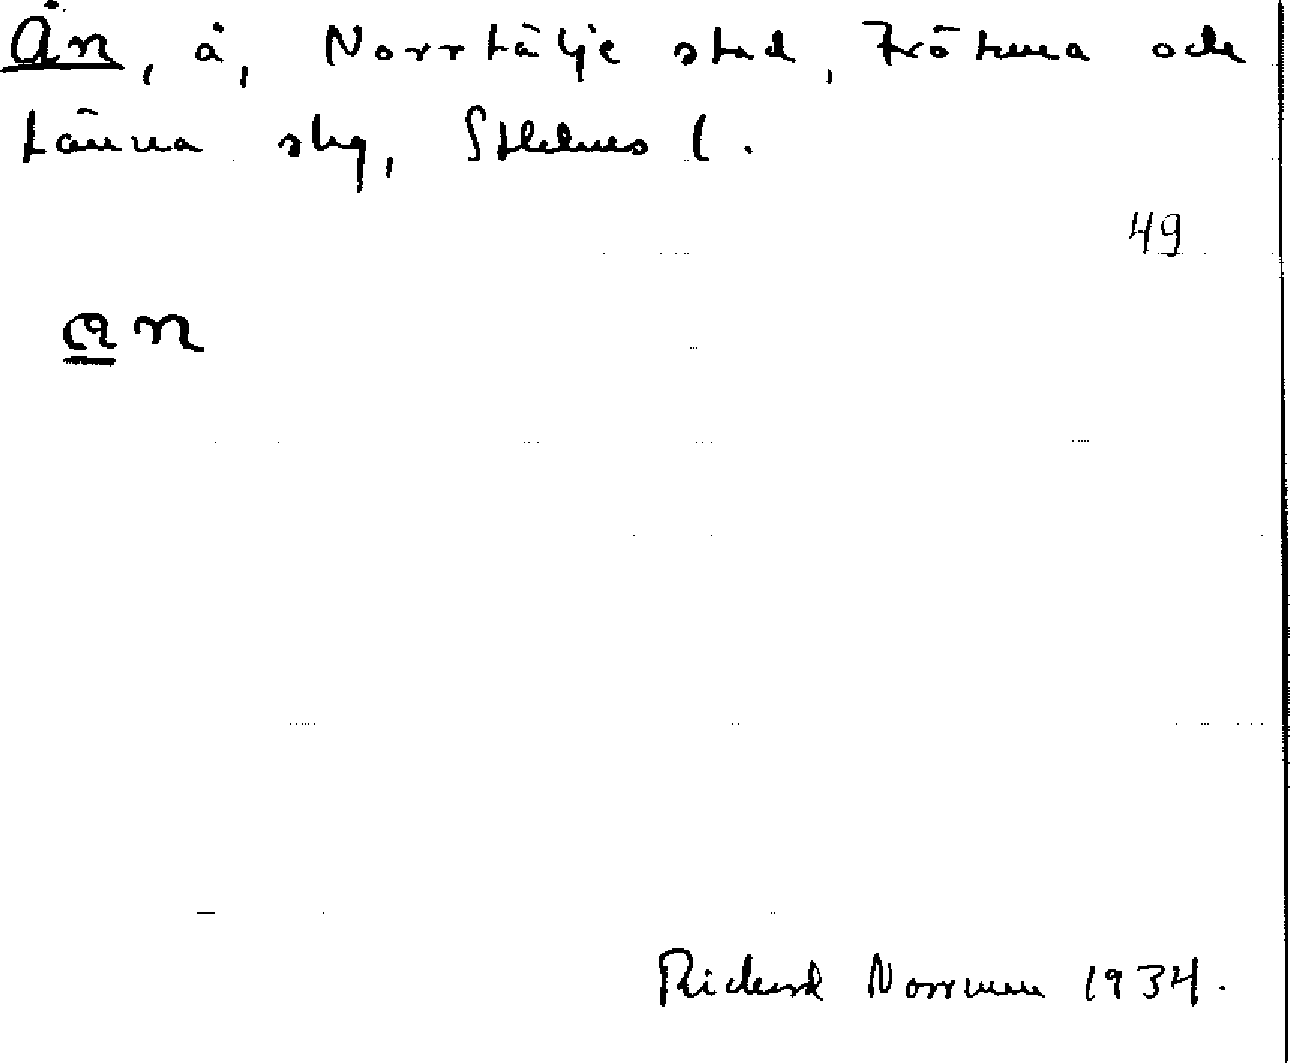 Ån, å, Norrtälje stad, Frötuna och
Länna skg, Sthlms l.
49
Richard Norrman 1934.